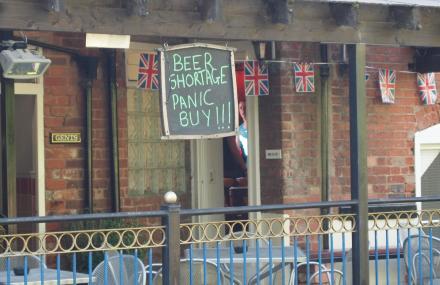 BEER
SHORTAGE
PANIC
BUY!!!
GENTS